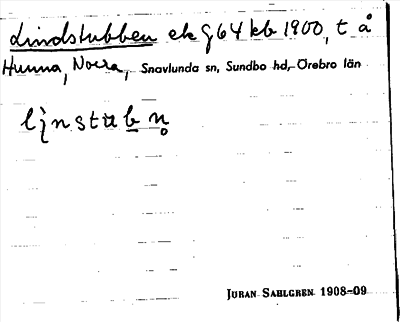 Lindstubben ek g 64 kb 1900, t å
Hunna, Norra, Snavlunda sn, Sundbo hd, Örebro län
linstubn̥
JURAN SAHLGREN 1908-09